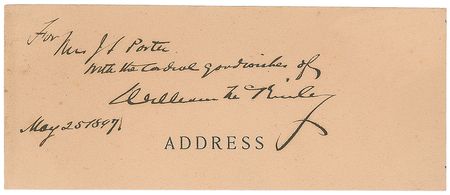 For
Mrs J S Porter
With the Cordial goodwishes of
William McKinley
May 25 1897
ADDRESS